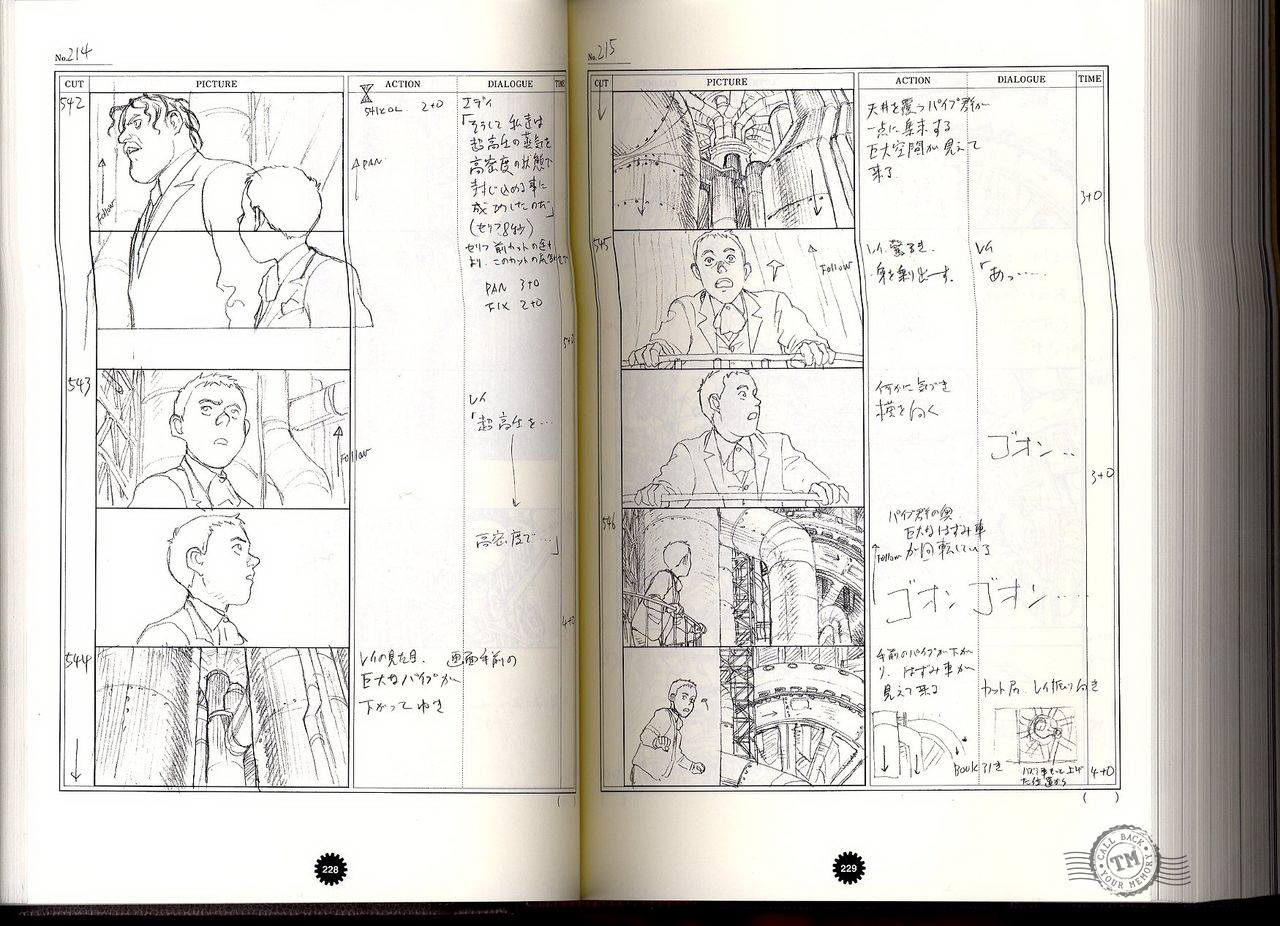 No.214
CUT PICTURE ACTION DIALOGUE TIME
542
Follow
541とOL 2+0
PAN
エディ
「そうして私達は
超高圧の蒸気を
高密度の状態で
封じ込める事に
成功したのだ」
(セリフ8秒)
PAN 3+0
FIX 2+0
5+0
543
Follow
レイ
「超高圧を…
高密度で…」
4+0
544
レイの見た目. 画面手前の
巨大なパイプが
下がってゆき
( )
228
No.215
CUT PICTURE ACTION DIALOGUE TIME
天井を覆うパイプ群が
一点に集束する
巨大空間が見えて
来る
3+0
545
Follow
レイ驚るき.
身を乗り出す.
レイ
「あっ……
何かに気づき
横を向く
ゴオン..
3+0
546
パイプ群の奥
巨大なはずみ車
が回転している
Follow
ゴオン ゴオン…
手前のパイプが下が
り. はずみ車が
見えて来る
カット尻 レイ振り向き
BOOK引き
4+0
( )
229
CALL BACK
TM
YOUR MEMORY